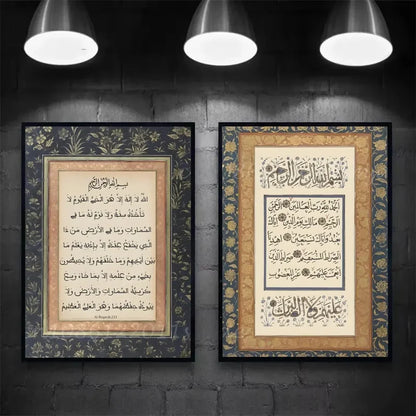 بسم الله الرحمن الرحيم
اللَّهُ لَا إِلَٰهَ إِلَّا هُوَ الْحَيُّ الْقَيُّومُ لَا
تَأْخُذُهُ سِنَةٌ وَلَا نَوْمٌ لَهُ مَا فِي
السَّمَاوَاتِ وَمَا فِي الْأَرْضِ مَنْ ذَا
الَّذِي يَشْفَعُ عِنْدَهُ إِلَّا بِإِذْنِهِ يَعْلَمُ مَا
بَيْنَ أَيْدِيهِمْ وَمَا خَلْفَهُمْ وَلَا يُحِيطُونَ
بِشَيْءٍ مِنْ عِلْمِهِ إِلَّا بِمَا شَاءَ وَسِعَ
كُرْسِيُّهُ السَّمَاوَاتِ وَالْأَرْضَ وَلَا
يَئُودُهُ حِفْظُهُمَا وَهُوَ الْعَلِيُّ الْعَظِيمُ
بسم الله الرحمن الرحيم
الحمد لله رب العالمين الرحمن
الرحيم مالك يوم الدين إياك
نعبد وإياك نستعين اهدنا
الصراط المستقيم صراط الذين
أنعمت عليهم غير المغضوب
عليهم ولا الضالين